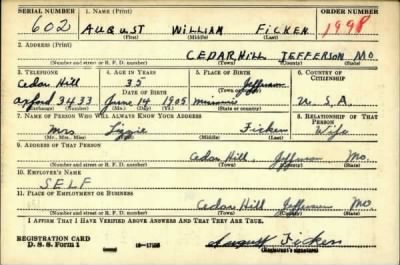 SERIAL NUMBER 1. NAME (Print) ORDER NUMBER
602 AUGUST WILLIAM FICKEN 1998
(First) (Middle) (Last)
2. ADDRESS (Print)
CEDAR HILL JEFFERSON Mo
(Number and street or R. F. D. number) (Town) (County) (State)
3. TELEPHONE 4. AGE IN YEARS 5. PLACE OF BIRTH 6. COUNTRY OF CITIZENSHIP
Cedar Hill 35 Jefferson
DATE OF BIRTH (Town or county)
3433 June 14 1905 Missouri U. S. A.
(Exchange) (Number) (Mo.) (Day) (Yr.) (State or country)
7. NAME OF PERSON WHO WILL ALWAYS KNOW YOUR ADDRESS 8. RELATIONSHIP OF THAT PERSON
Mrs Lizzie Ficken Wife
(Mr., Mrs., Miss) (First) (Middle) (Last)
9. ADDRESS OF THAT PERSON
Cedar Hill Jefferson Mo.
(Number and street or R. F. D. number) (Town) (County) (State)
10. EMPLOYER'S NAME
SELF
11. PLACE OF EMPLOYMENT OR BUSINESS
Cedar Hill Jefferson Mo
(Number and street or R. F. D. number) (Town) (County) (State)
I AFFIRM THAT I HAVE VERIFIED ABOVE ANSWERS AND THAT THEY ARE TRUE.
REGISTRATION CARD
D. S. S. Form 1 August Ficken
(Registrant's signature)